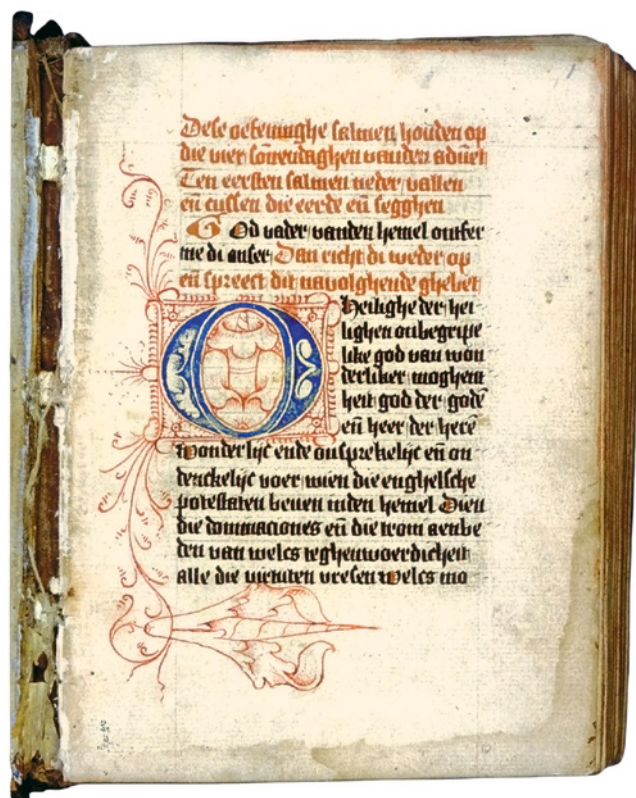 Dese oefeninghe salmen houden op
die vier sonnendaghen vanden aduent
Ten eersten salmen neder vallen
eñ cussen die eerde eñ segghen
God vader vanden hemel ontfer
me di onser Dan richt di weder op
eñ spreect dit navolghende ghebet
O Heilighe der hei
lighen onbegripe
like god van won
derliker moghent
heit god der godē
eñ heer der herē
wonderlijc ende onsprekelijc eñ on
denckelijc voer wien die enghelsche
potestaten beuen inden hemel Dien
die dominaciones eñ die troni aenbe
den van welcs teghenwoerdicheit
alle die virtuten vresen welcs mo